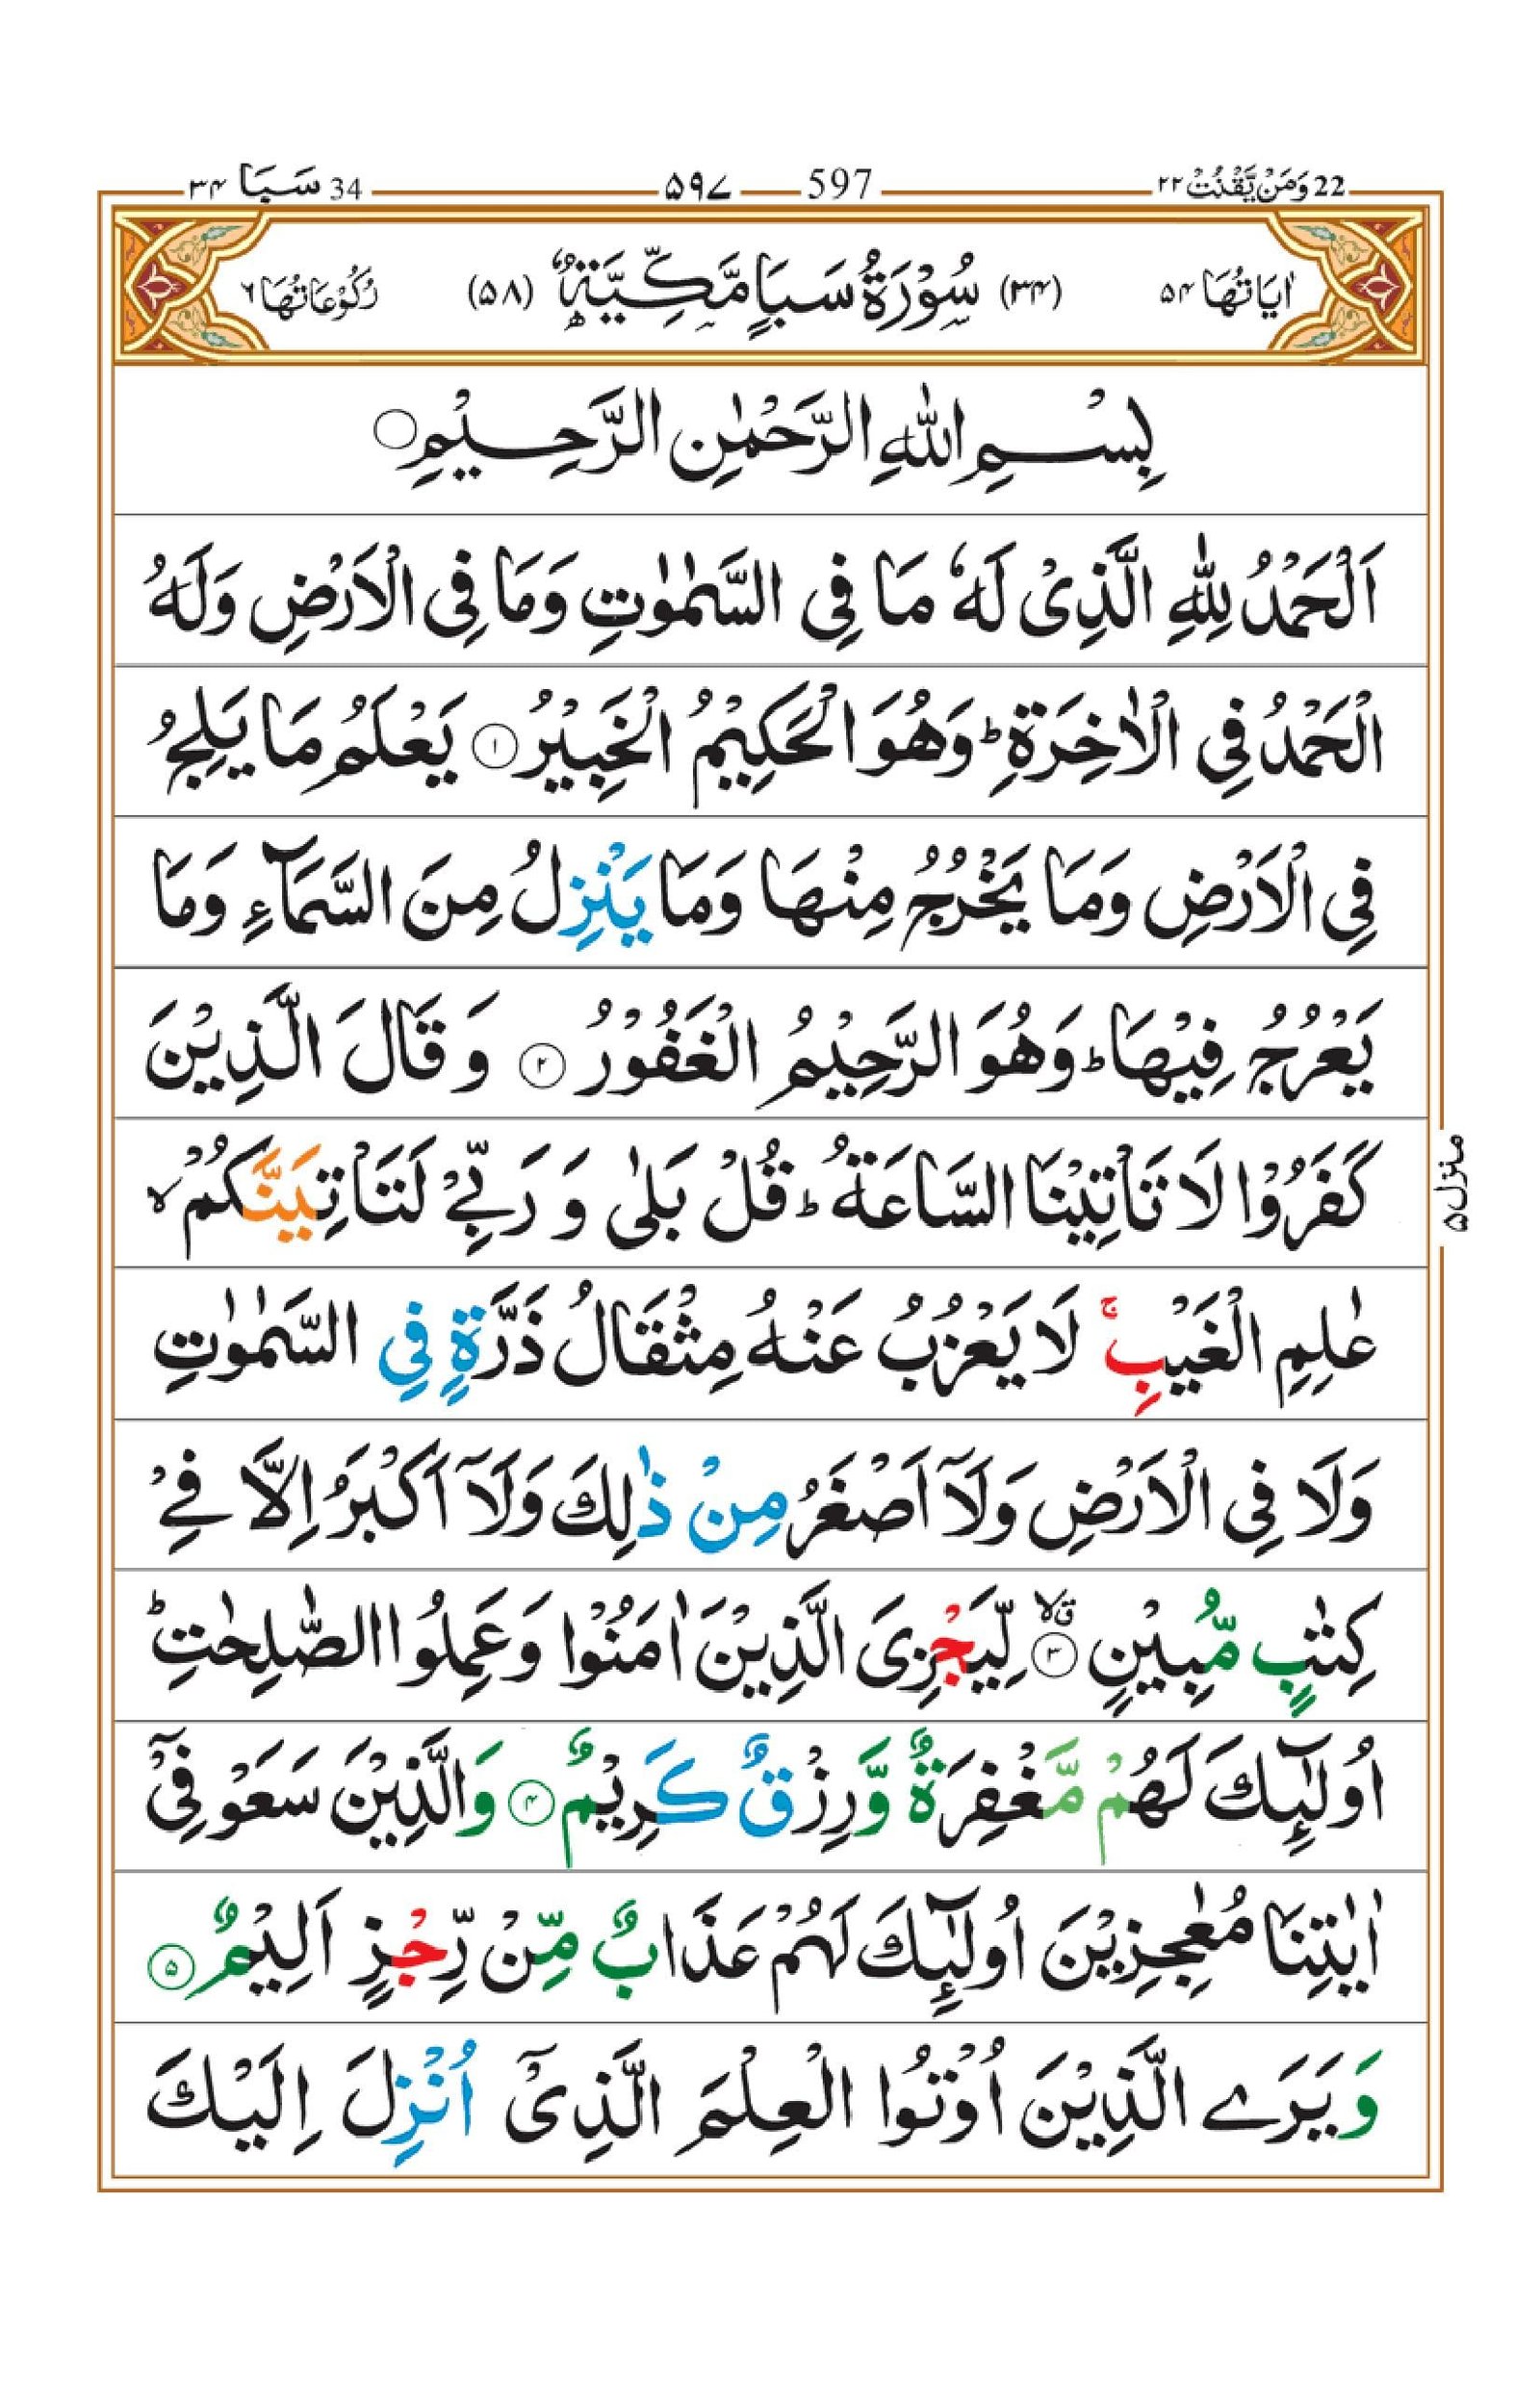 22 وَمَنْ يَّقْنُتْ ۲۲ 597 ۵۹۷ 34 سَبَا ۳۴
اٰيَاتُهَا ۵۴ (۳۴) سُوْرَةُ سَبَاٍ مَّكِّيَّةٌ (۵۸) رُكُوْعَاتُهَا ۶
بِسْمِ اللّٰهِ الرَّحْمٰنِ الرَّحِيْمِ ○
اَلْحَمْدُ لِلّٰهِ الَّذِىْ لَهٗ مَا فِى السَّمٰوٰتِ وَمَا فِى الْاَرْضِ وَلَهُ
الْحَمْدُ فِى الْاٰخِرَةِ ؕ وَهُوَ الْحَكِيْمُ الْخَبِيْرُ ۱ يَعْلَمُ مَا يَلِجُ
فِى الْاَرْضِ وَمَا يَخْرُجُ مِنْهَا وَمَا يَنْزِلُ مِنَ السَّمَآءِ وَمَا
يَعْرُجُ فِيْهَا ؕ وَهُوَ الرَّحِيْمُ الْغَفُوْرُ ۲ وَ قَالَ الَّذِيْنَ
كَفَرُوْا لَا تَاْتِيْنَا السَّاعَةُ ؕ قُلْ بَلٰى وَ رَبِّىْ لَتَاْتِيَنَّكُمْ ۙ
عٰلِمِ الْغَيْبِ ۚ لَا يَعْزُبُ عَنْهُ مِثْقَالُ ذَرَّةٍ فِى السَّمٰوٰتِ
وَلَا فِى الْاَرْضِ وَلَاۤ اَصْغَرُ مِنْ ذٰلِكَ وَلَاۤ اَكْبَرُ اِلَّا فِىْ
كِتٰبٍ مُّبِيْنٍ ۳ ۙق لِّيَجْزِىَ الَّذِيْنَ اٰمَنُوْا وَعَمِلُوا الصّٰلِحٰتِ ؕ
اُولٰٓئِكَ لَهُمْ مَّغْفِرَةٌ وَّرِزْقٌ كَرِيْمٌ ۴ وَالَّذِيْنَ سَعَوْ فِىْۤ
اٰيٰتِنَا مُعٰجِزِيْنَ اُولٰٓئِكَ لَهُمْ عَذَابٌ مِّنْ رِّجْزٍ اَلِيْمٌ ۵
وَيَرَى الَّذِيْنَ اُوْتُوا الْعِلْمَ الَّذِىْۤ اُنْزِلَ اِلَيْكَ
منزل ۵